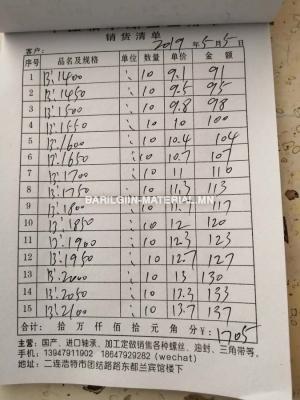 销货清单
客户：
2019 年 5 月 5 日
序号 品名及规格 单位 数量 单价 金额
1 B:1400 10 9.1 91
2 B:1450 10 9.5 95
3 B:1500 10 9.8 98
4 B:1550 10 10 100
5 B:1600 10 10.4 104
6 B:1650 10 10.7 107
7 B:1700 10 11 110
8 B:1750 10 11.3 113
9 B:1800 10 117
10 B:1850 10 12 120
11 B:1900 10 12.3 123
12 B:1950 10 12.7 127
13 B:2000 10 13 130
14 B:2050 10 13.3 133
15 B:2100 10 13.7 137
合计： 拾 万 仟 佰 拾 元 角 分 ¥: 1705
主营：国产、进口轴承、加工定做销售各种螺丝、油封、三角带等。
手机：13947911902 18647929282 (wechat)
地址：二连浩特市团结路路东都兰宾馆楼下
BARILGIIN-MATERIAL.MN